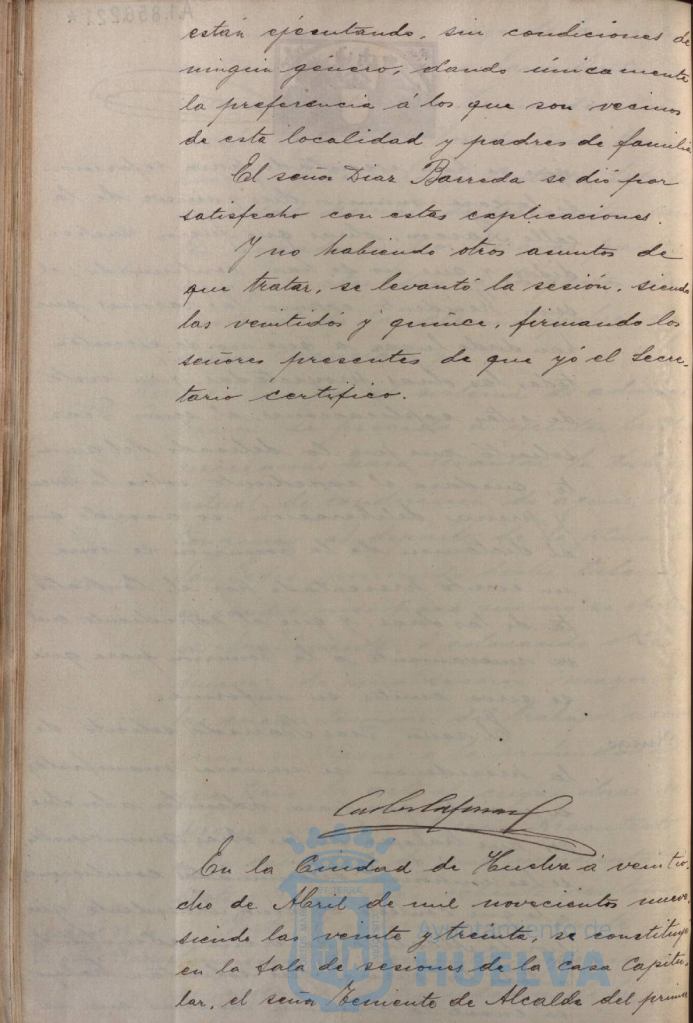 están ejecutando, sin condiciones de
ningún género, dando únicamente
la preferencia á los que son vecinos
de esta localidad y padres de familia
El señor Diaz Barreda se dió por
satisfecho con estas explicaciones.
Y no habiendo otros asuntos de
que tratar, se levantó la sesión, siendo
las ventidós y quince, firmando los
señores presentes de que yó el Secre-
tario certifico.
En la Ciudad de Huelva á veintio-
cho de Abril de mil novecientos nueve,
siendo las veinte y treinta, se constituyó
en la Sala de sesiones de la casa Capitu-
lar, el señor Teniente de Alcalde del prime
Ayuntamiento de
HUELVA